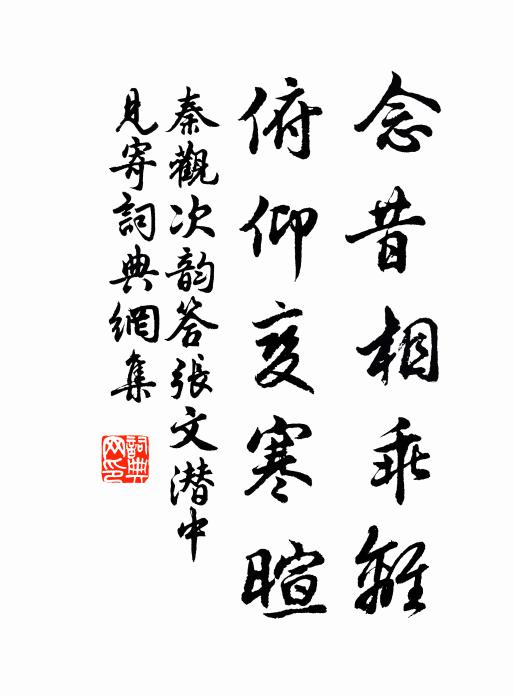 念昔相乖離
俯仰变寒暄
秦觀次韵答張文潜中
見寄詞典網集
詞典网印